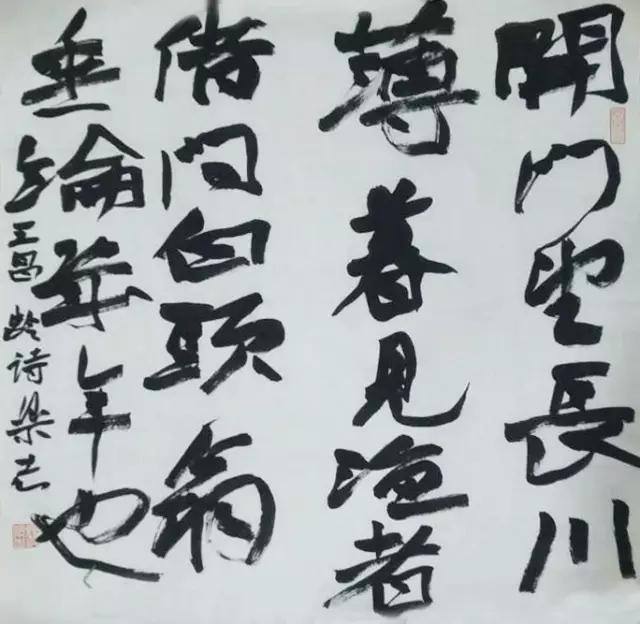 開門望長川
薄暮見漁者
借問白頭翁
垂綸幾年也
王昌龄诗 梁志